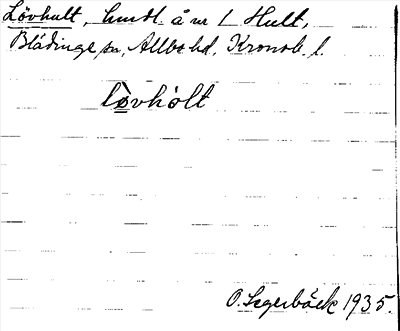 Lövhult, hmdl. å nr 1 Hult,
Blädinge sn, Allbo hd, Kronob. l.
lø̀vhòlt
O. Segerbäck 1935.